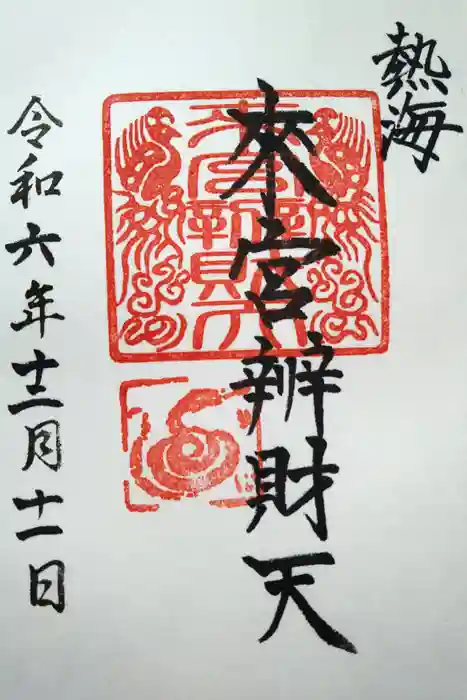 熱海
來宮辨財天
令和六年十二月十一日